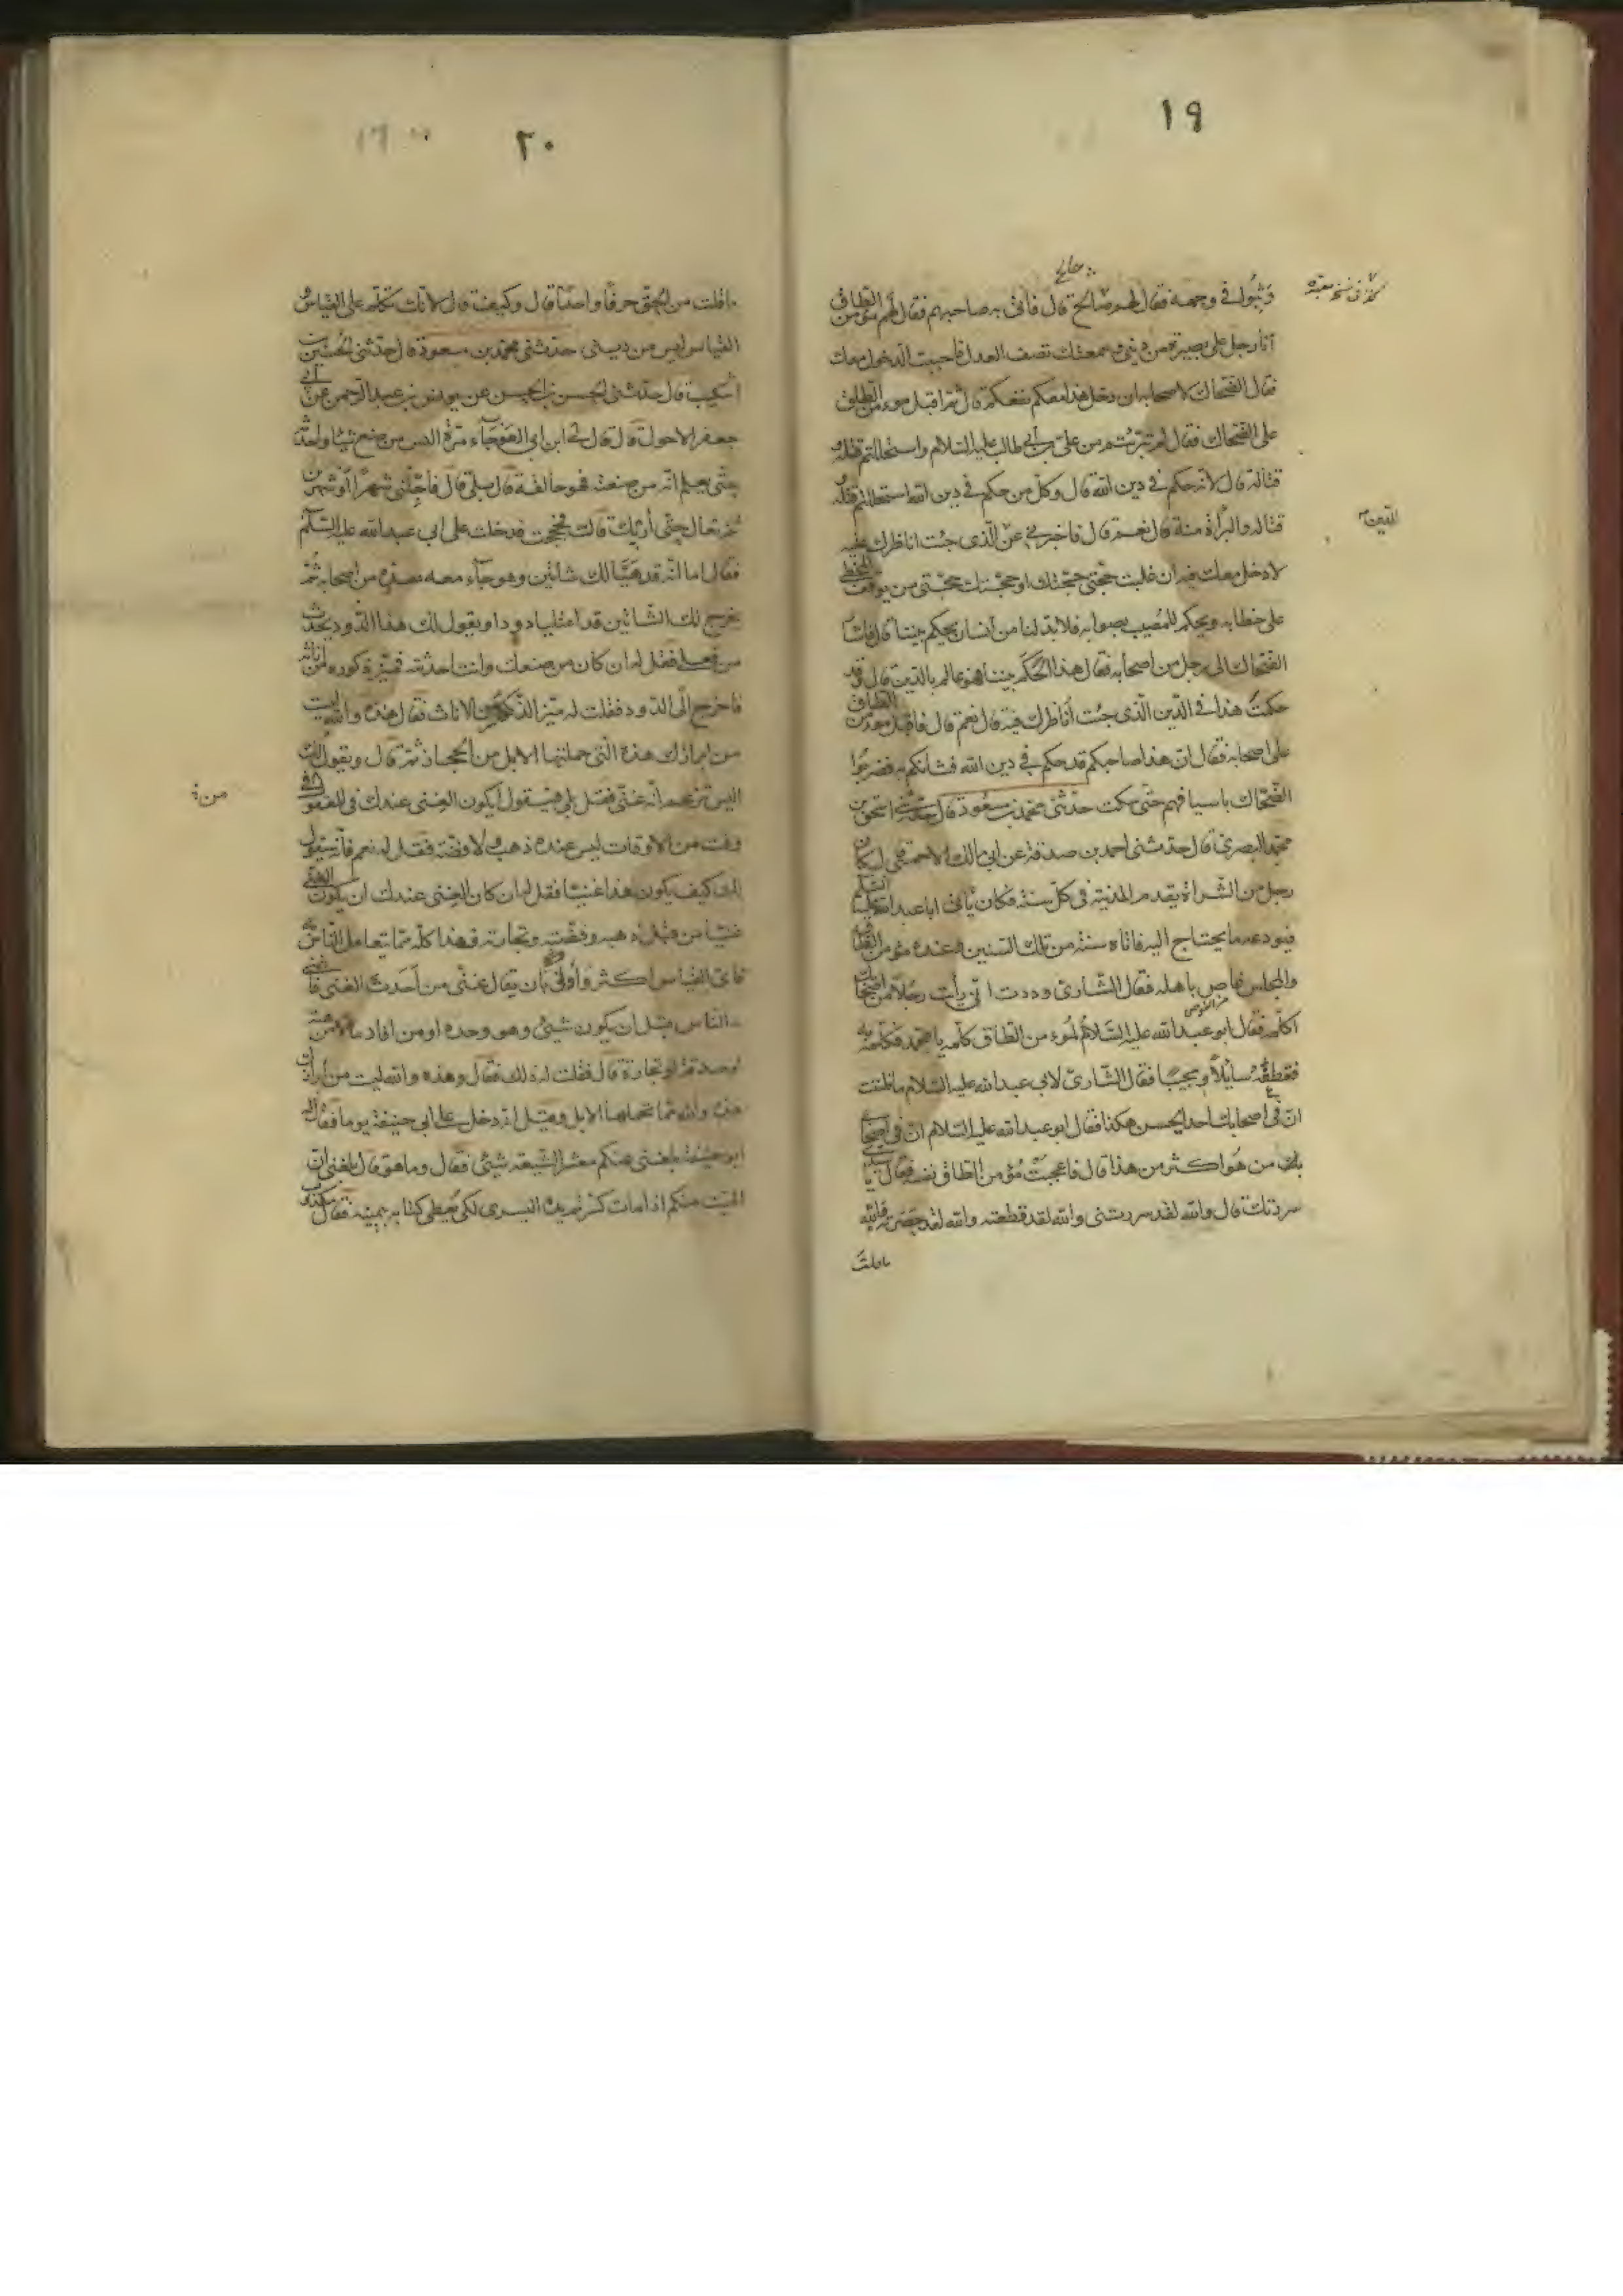 ١٩
وثبوا في وجهه فقال لهم صالح قال فأتى به صاحبهم فقال لهم مؤمن الطاق
أنا رجل على بصيرة من ديني وسمعتك تصف العدل فاحببت الدخول معك
فقال الضحاك لاصحابه ان دخل هذا معكم نفعكم قال ثم اقبل مؤمن الطاق
على الضحاك فقال لم تبرئتم من علي بن أبي طالب عليه السلام واستحللتم قتله و
قتاله قال لانه حكم في دين الله قال وكل من حكم في دين الله استحللتم قتله و
قتاله والبراءة منه قال نعم قال فاخبرني عن الذي جئت اناظرك فيه
لادخل معك فيه ان غلبت حجتي حجتك او حجتك حجتي من يوقف المخطي
على خطايه ويحكم للمصيب بصوابه فلابد لنا من انسان يحكم بيننا قال فاشار
الضحاك الى رجل من اصحابه فقال هذا الحكم بيننا هو عالم بالدين قال وقد
حكمت هذا في الدين الذي جئت أناظرك فيه قال نعم قال فاقبل مؤمن الطاق
على اصحابه فقال ان هذا صاحبكم قد حكم في دين الله فشانكم به فضربوا
الضحاك باسيافهم حتى سكت حدثني محمد بن مسعود قال حدثني اسحق بن
محمد البصري قال حدثني احمد بن صدقة عن ابي مالك الاحمسي قال كان
رجل من الشراة يقدم المدينة في كل سنة فكان يأتى اباعبدالله عليه السلم
فيودعه ما يحتاج اليه فاتاه سنة من تلك السنين وعنده مؤمن الطاق
والمجلس غاص باهله فقال الشاري وددت اني رأيت رجلا من اصحابك
اكلمه فقال ابو عبدالله عليه السلام لمؤمن الطاق كلمه يا محمد فكلمه به
فقطعه سايلا ومجيبا فقال الشاري لابي عبدالله عليه السلام ما ظننت
ان في اصحابك احد يحسن هكذا فقال ابو عبدالله عليه السلام ان في اصحابي
من هو اكثر من هذا قال فاعجبت مؤمن الطاق نفسه فقال يا سيدي
سررتك قال والله لقد سررتنى والله لقد قطعته والله لقد حصرته والله
ماقلت
الدين
٢٠
ماقلت من الحق حرفا واحدا قال وكيف قال لانك تكلم على القياس و
القياس ليس من ديني حدثني محمد بن مسعود قال حدثني الحسين بن
اشكيب قال حدثني الحسن بن الحسين عن يونس بن عبدالرحمن عن أبي
جعفر الاحول قال قال لي ابن ابي العوجاء مرة اليس من صنع شيئا واحدثه
حتى يعلم انه من صنعته فهو خالقه قال بلى قال فاجلني شهرا او شهرين
ثم تعال حتى أريك قال فحججت فدخلت على ابي عبدالله عليه السلم
فقال اما انه قد هيا لك شاتين وهو جاء معه بعدة من اصحابه ثم
يخرج لك الشاتين قد امتليا دودا ويقول لك هذا الدود يحدث
من فعلي فقل له ان كان من صنعك وانت احدثته فميز ذكوره من اناثه
فاخرج الى الدود فقلت له ميز الذكور من الاناث فقال هذه والله ليست
من ابزارك هذه التي حملتها الابل من الحجاز ثم قال ويقول لك
اليس تزعم انه غني فقل بلى فيقول أيكون الغني عندك في المعقول في
وقت من الاوقات ليس عنده ذهب ولا فضة فقل له نعم فانه سيقول
لك كيف يكون هذا غنيا فقل له ان كان الغنى عندك ان يكون الغني
غنيا من قبل ذهبه وفضته وتجارته فهذا كله مما يتعامل الناس به
فاي القياس اكثر وأولى بان يقال غني من أحدث الغنى فاغنى
به الناس قبل ان يكون شيئ وهو وحده او من افاد مالا من هبة
او صدقة او تجارة قال فقلت له ذلك فقال وهذه والله ليست من ابزارك
هذه والله مما تحملها الابل وقيل انه دخل على ابي حنيفة يوما فقال له
ابو حنيفة بلغني عنكم معشر الشيعة شيئ فقال وما هو قال بلغني ان
الميت منكم اذا مات كسرتم يده اليسرى لكي يعطى كتابه بيمينه فقال مكذوب